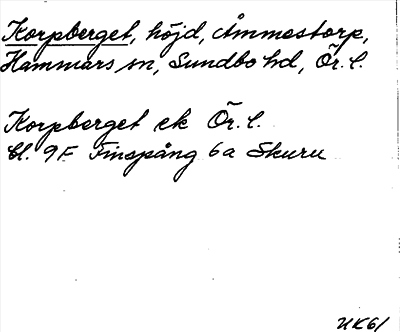 Korpberget, höjd, Åmmestorp,
Hammars sn, Sundbo hd, Ör. l.
Korpberget ek Ör. l.
bl. 9F Finspång 6a Skuru
UK61